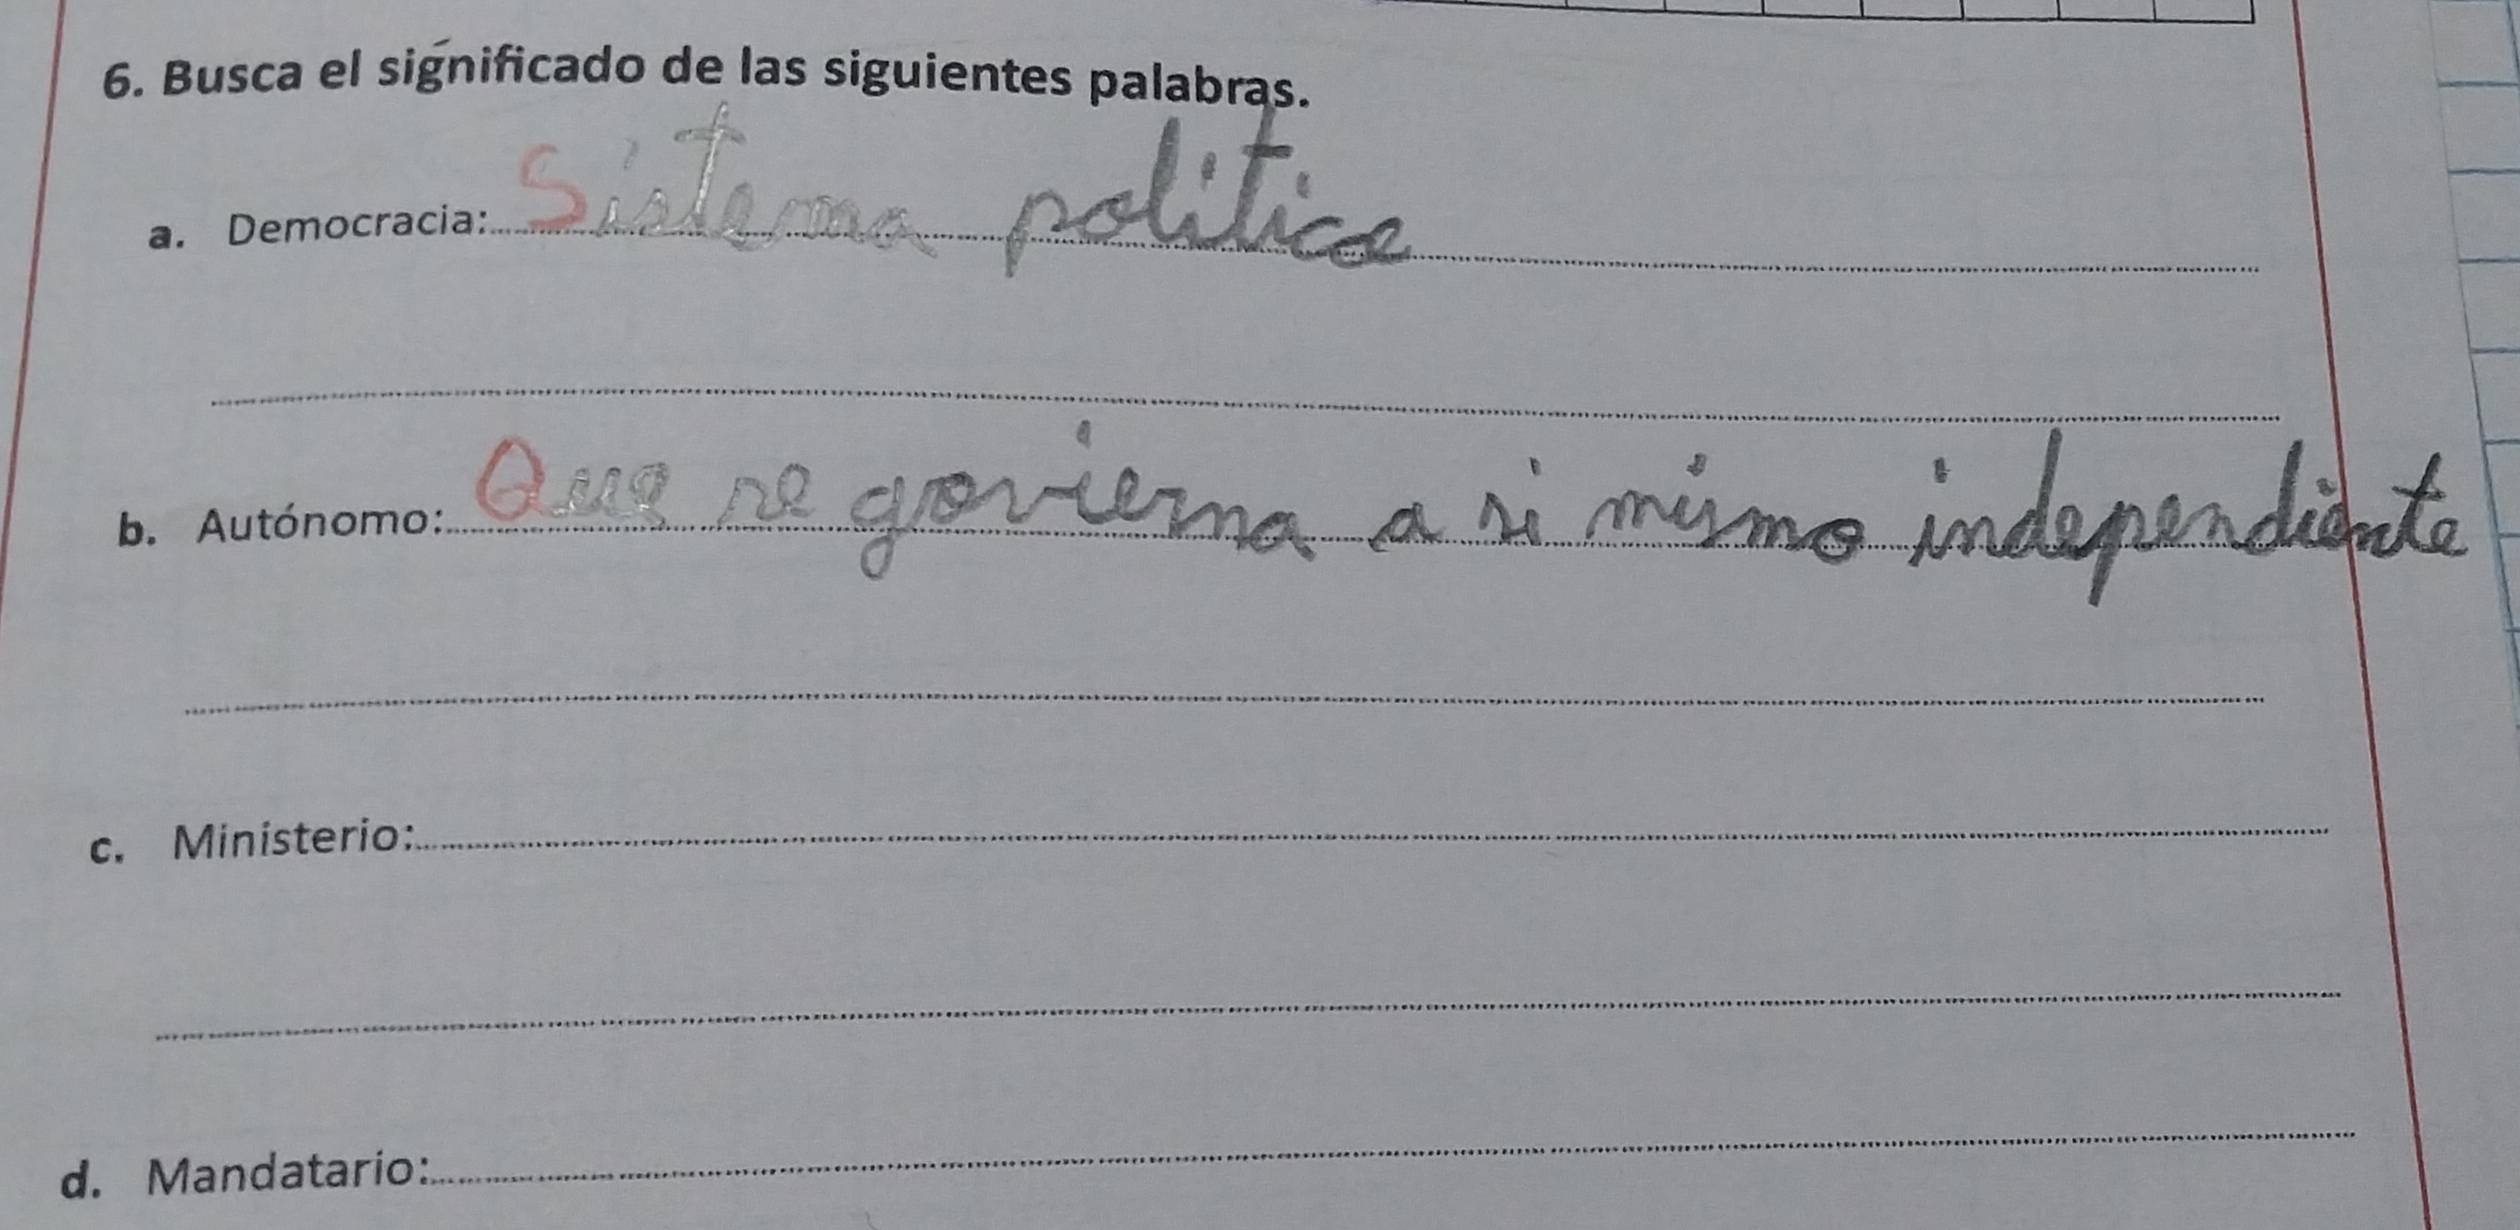 6. Busca el significado de las siguientes palabras.
a. Democracia: Sistema politico
b. Autónomo: Que se govierna a si mismo independiente
c. Ministerio:
d. Mandatario: